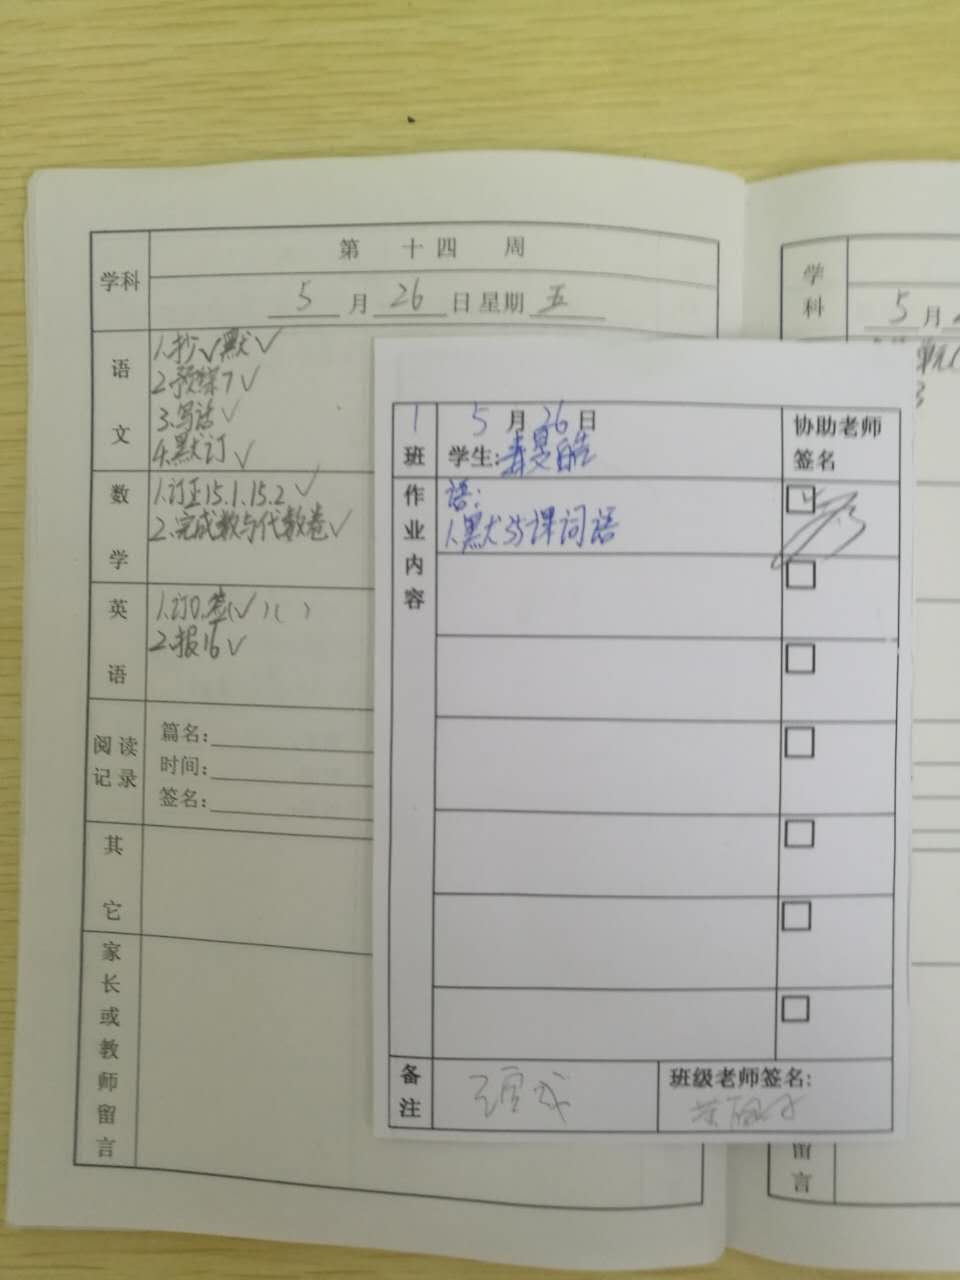 学科
第 十四 周
5月26日星期五
语文
1.抄√默√
2.预综7√
3.写话√
4.默订√
数学
1.订正15.1.15.2√
2.完成数与代数卷√
英语
2.报16√
阅读记录
篇名:
时间:
签名:
其它
家长或教师留言
1班
5月26日
学生:
协助老师签名
作业内容
语:
1.默 课词语
备注
已完成
班级老师签名:
学科
5月
单元
留言